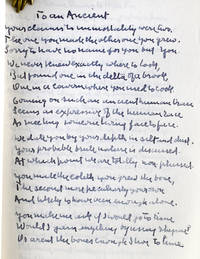 To an Ancient
Your claims to immortality were two.
The one you made, the other one you grew.
Sorry to have no name for you but You.
We never knew exactly where to look,
But found one in the delta of a brook,
One in a cavern where you used to cook.
Coming on such an ancient human trace
Seems as expressive of the human race
As meeting someone living face to face.
We date you by your depth in silt and dust
Your probable brute nature is discussed.
At which point we are totally nonplussed.
You made the eolith, you grew the bone,
The second more peculiarly your own
And likely to have been enough alone.
You make me ask if I would go to time
Would I gain anything by using rhyme?
Or aren't the bones enough I live to lime